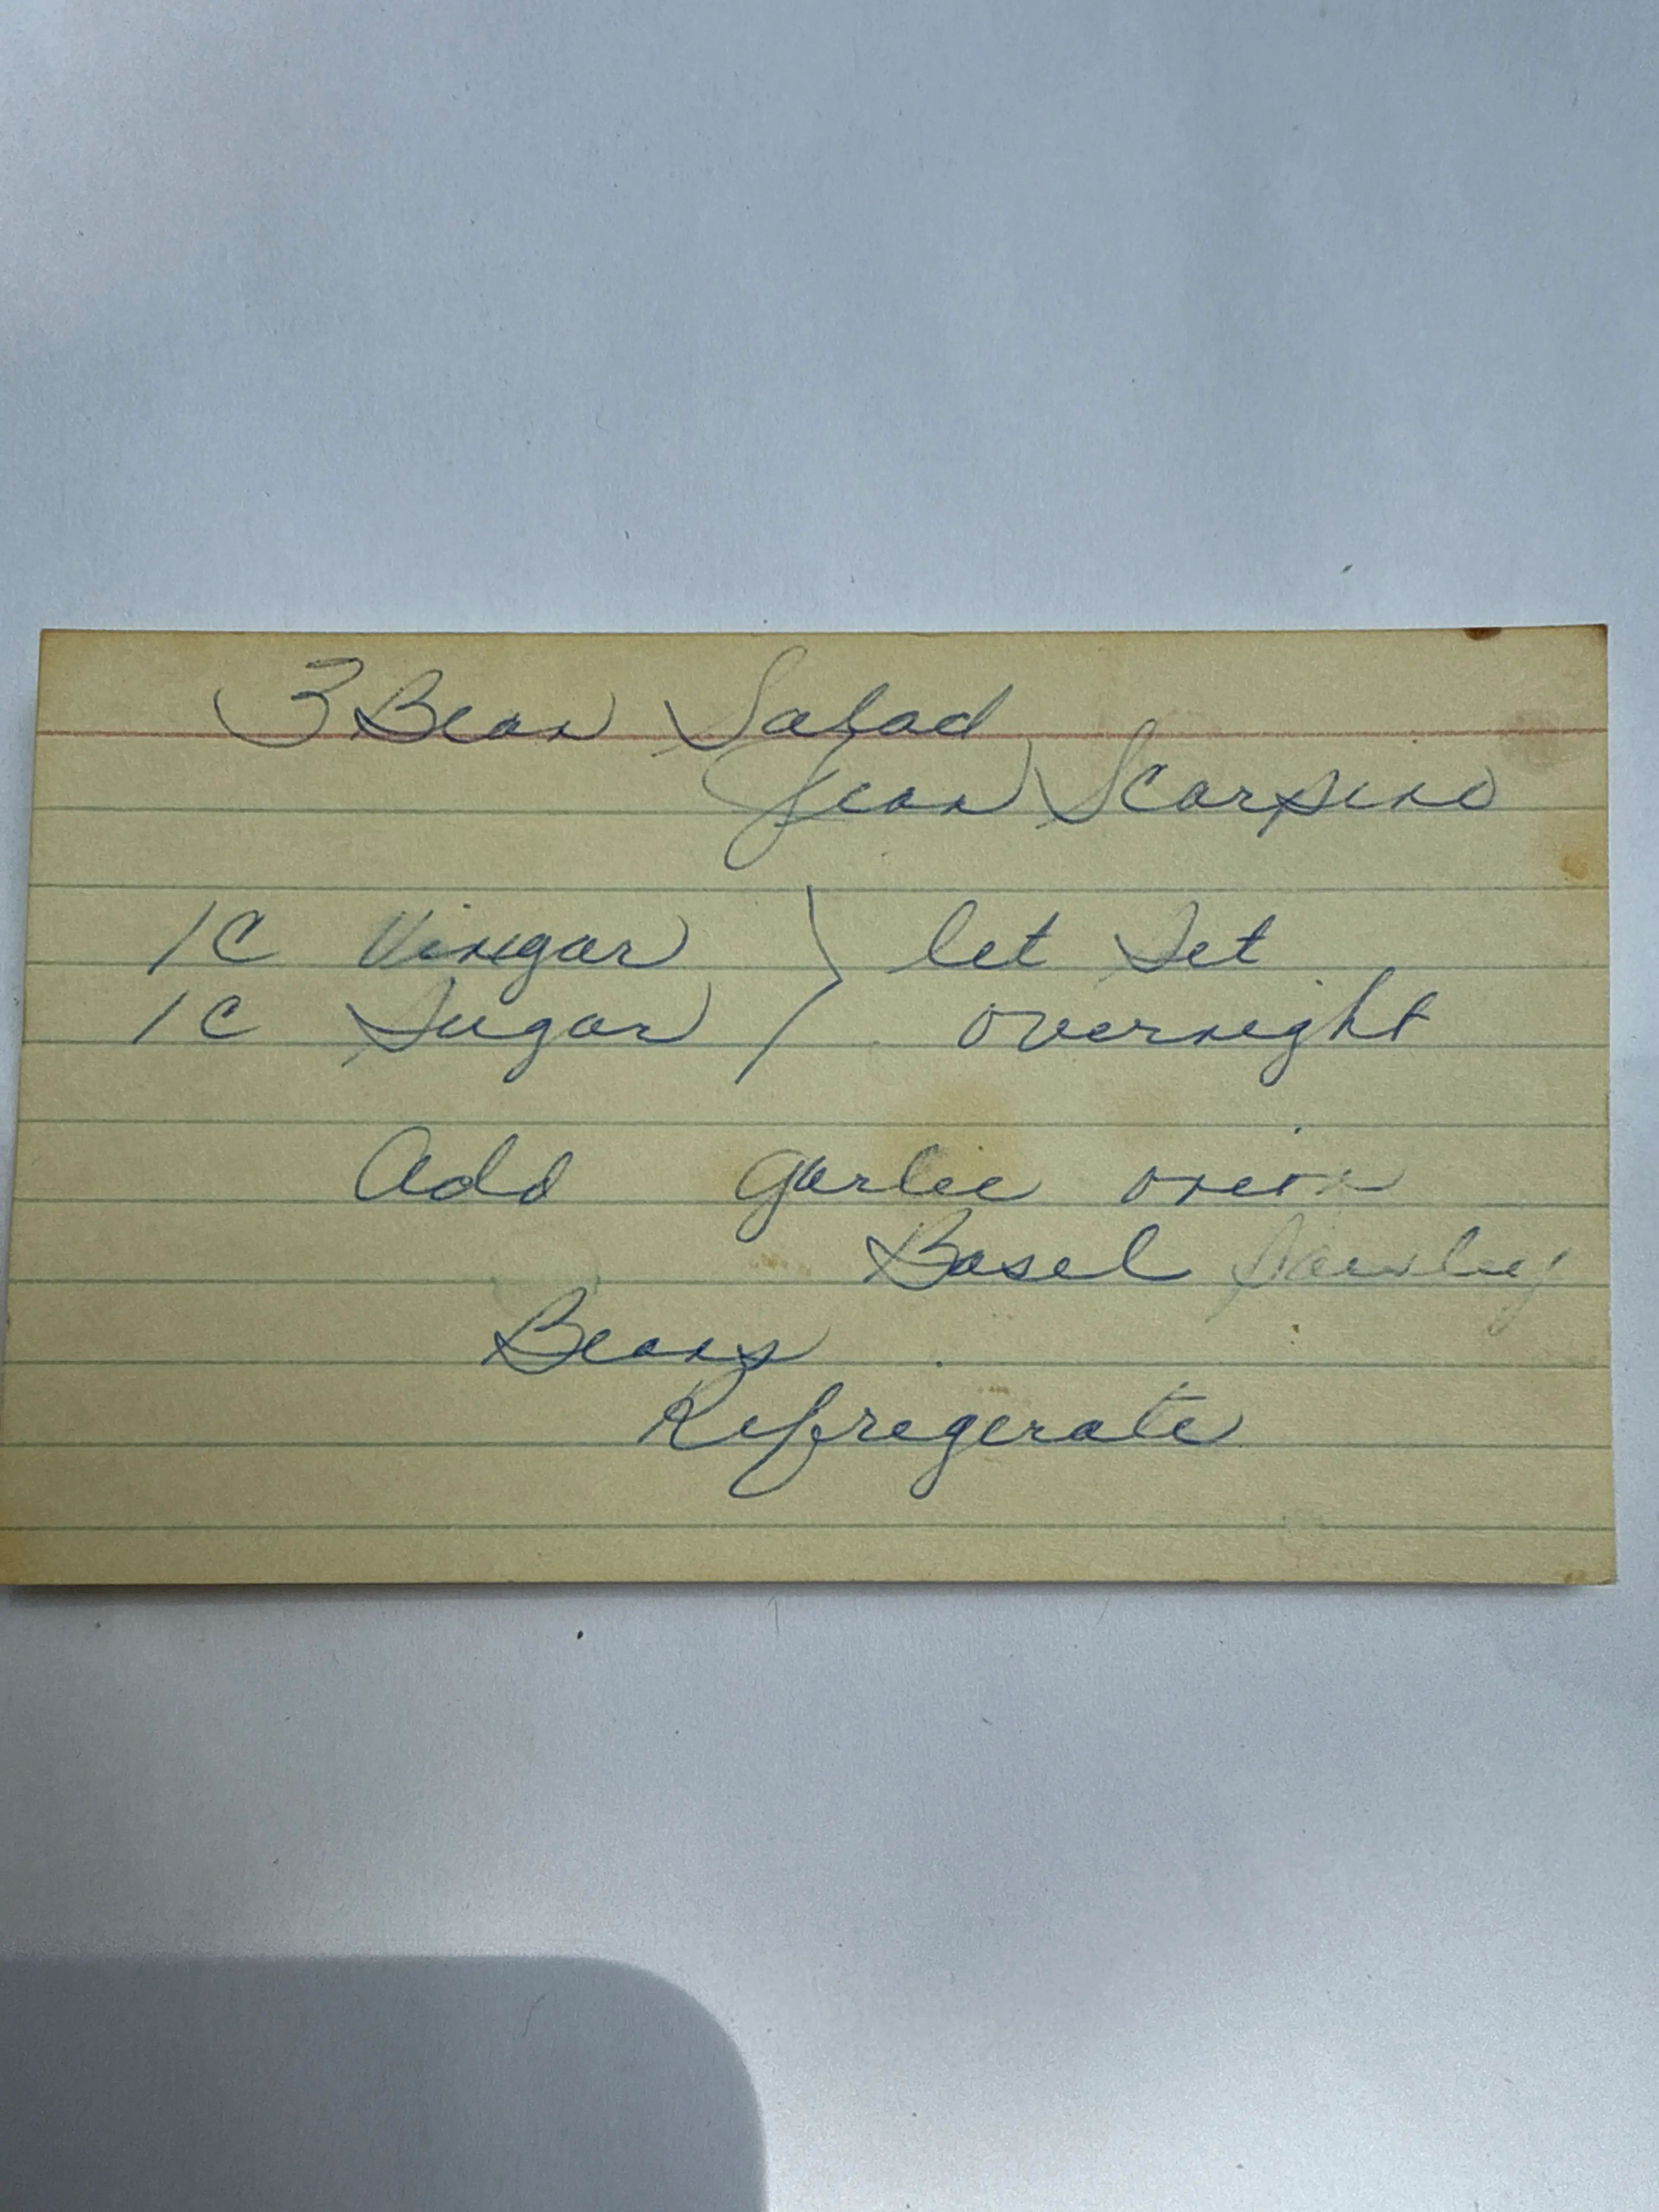 3 Bean Salad
Jean Scarpino
1C Vinegar } let Set
1C Sugar overnight
Add garlic onion
Basel Parsley
Beans
Refregerate